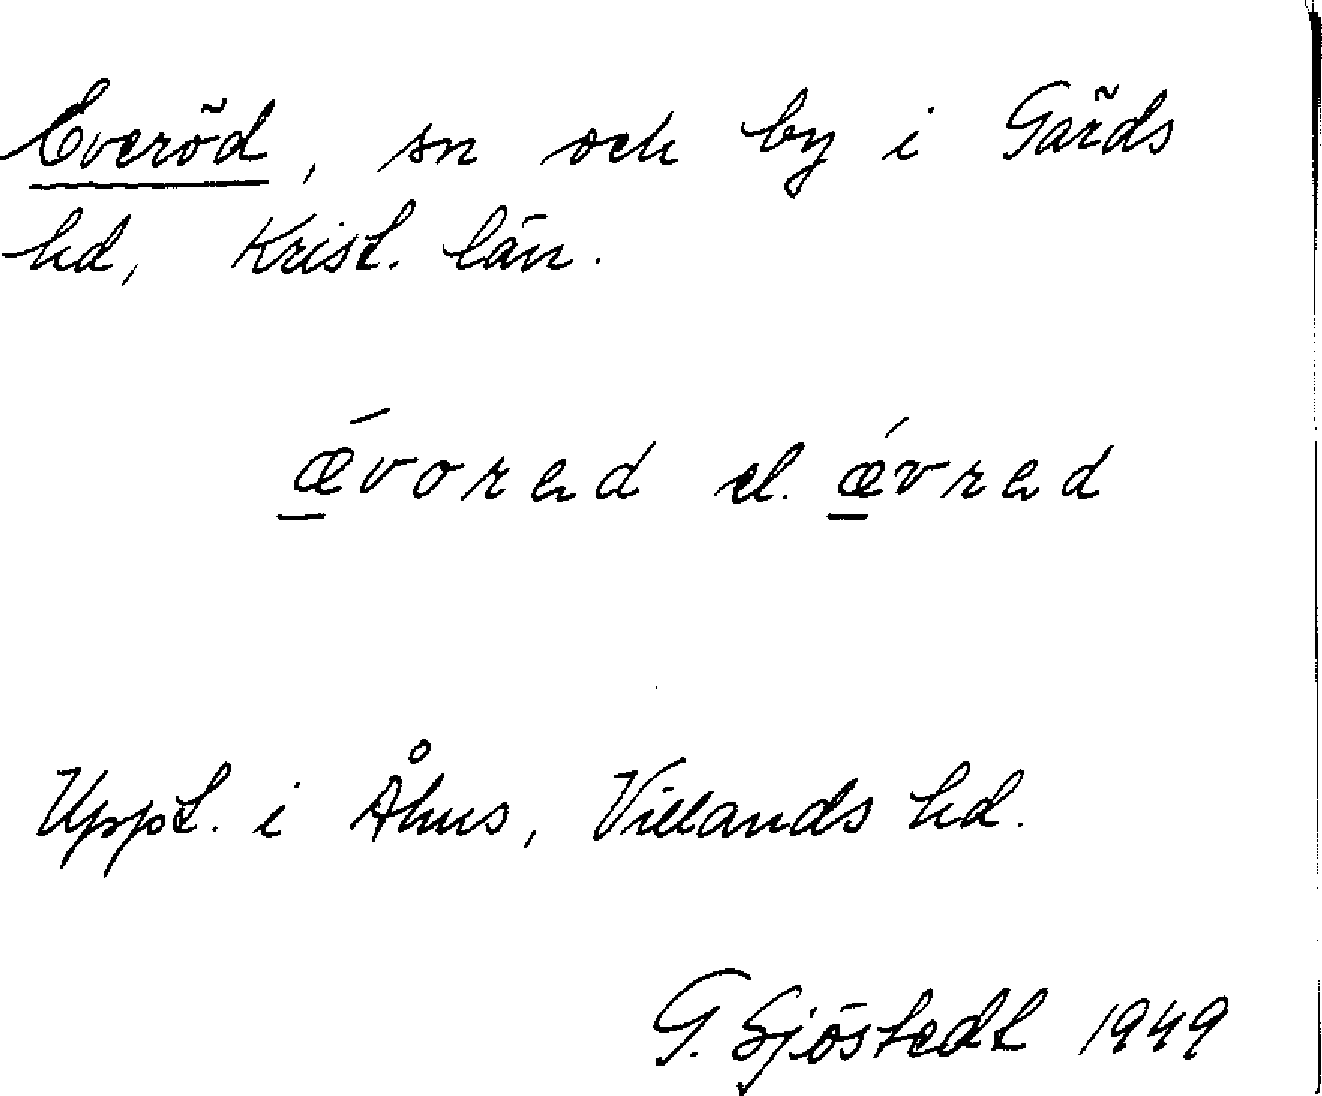 Everöd, sn och by i Gärds
hd, Krist. län.
ǽvorad el. ǽvrad
Uppt. i Åhus, Villands hd.
G. Sjöstedt 1949